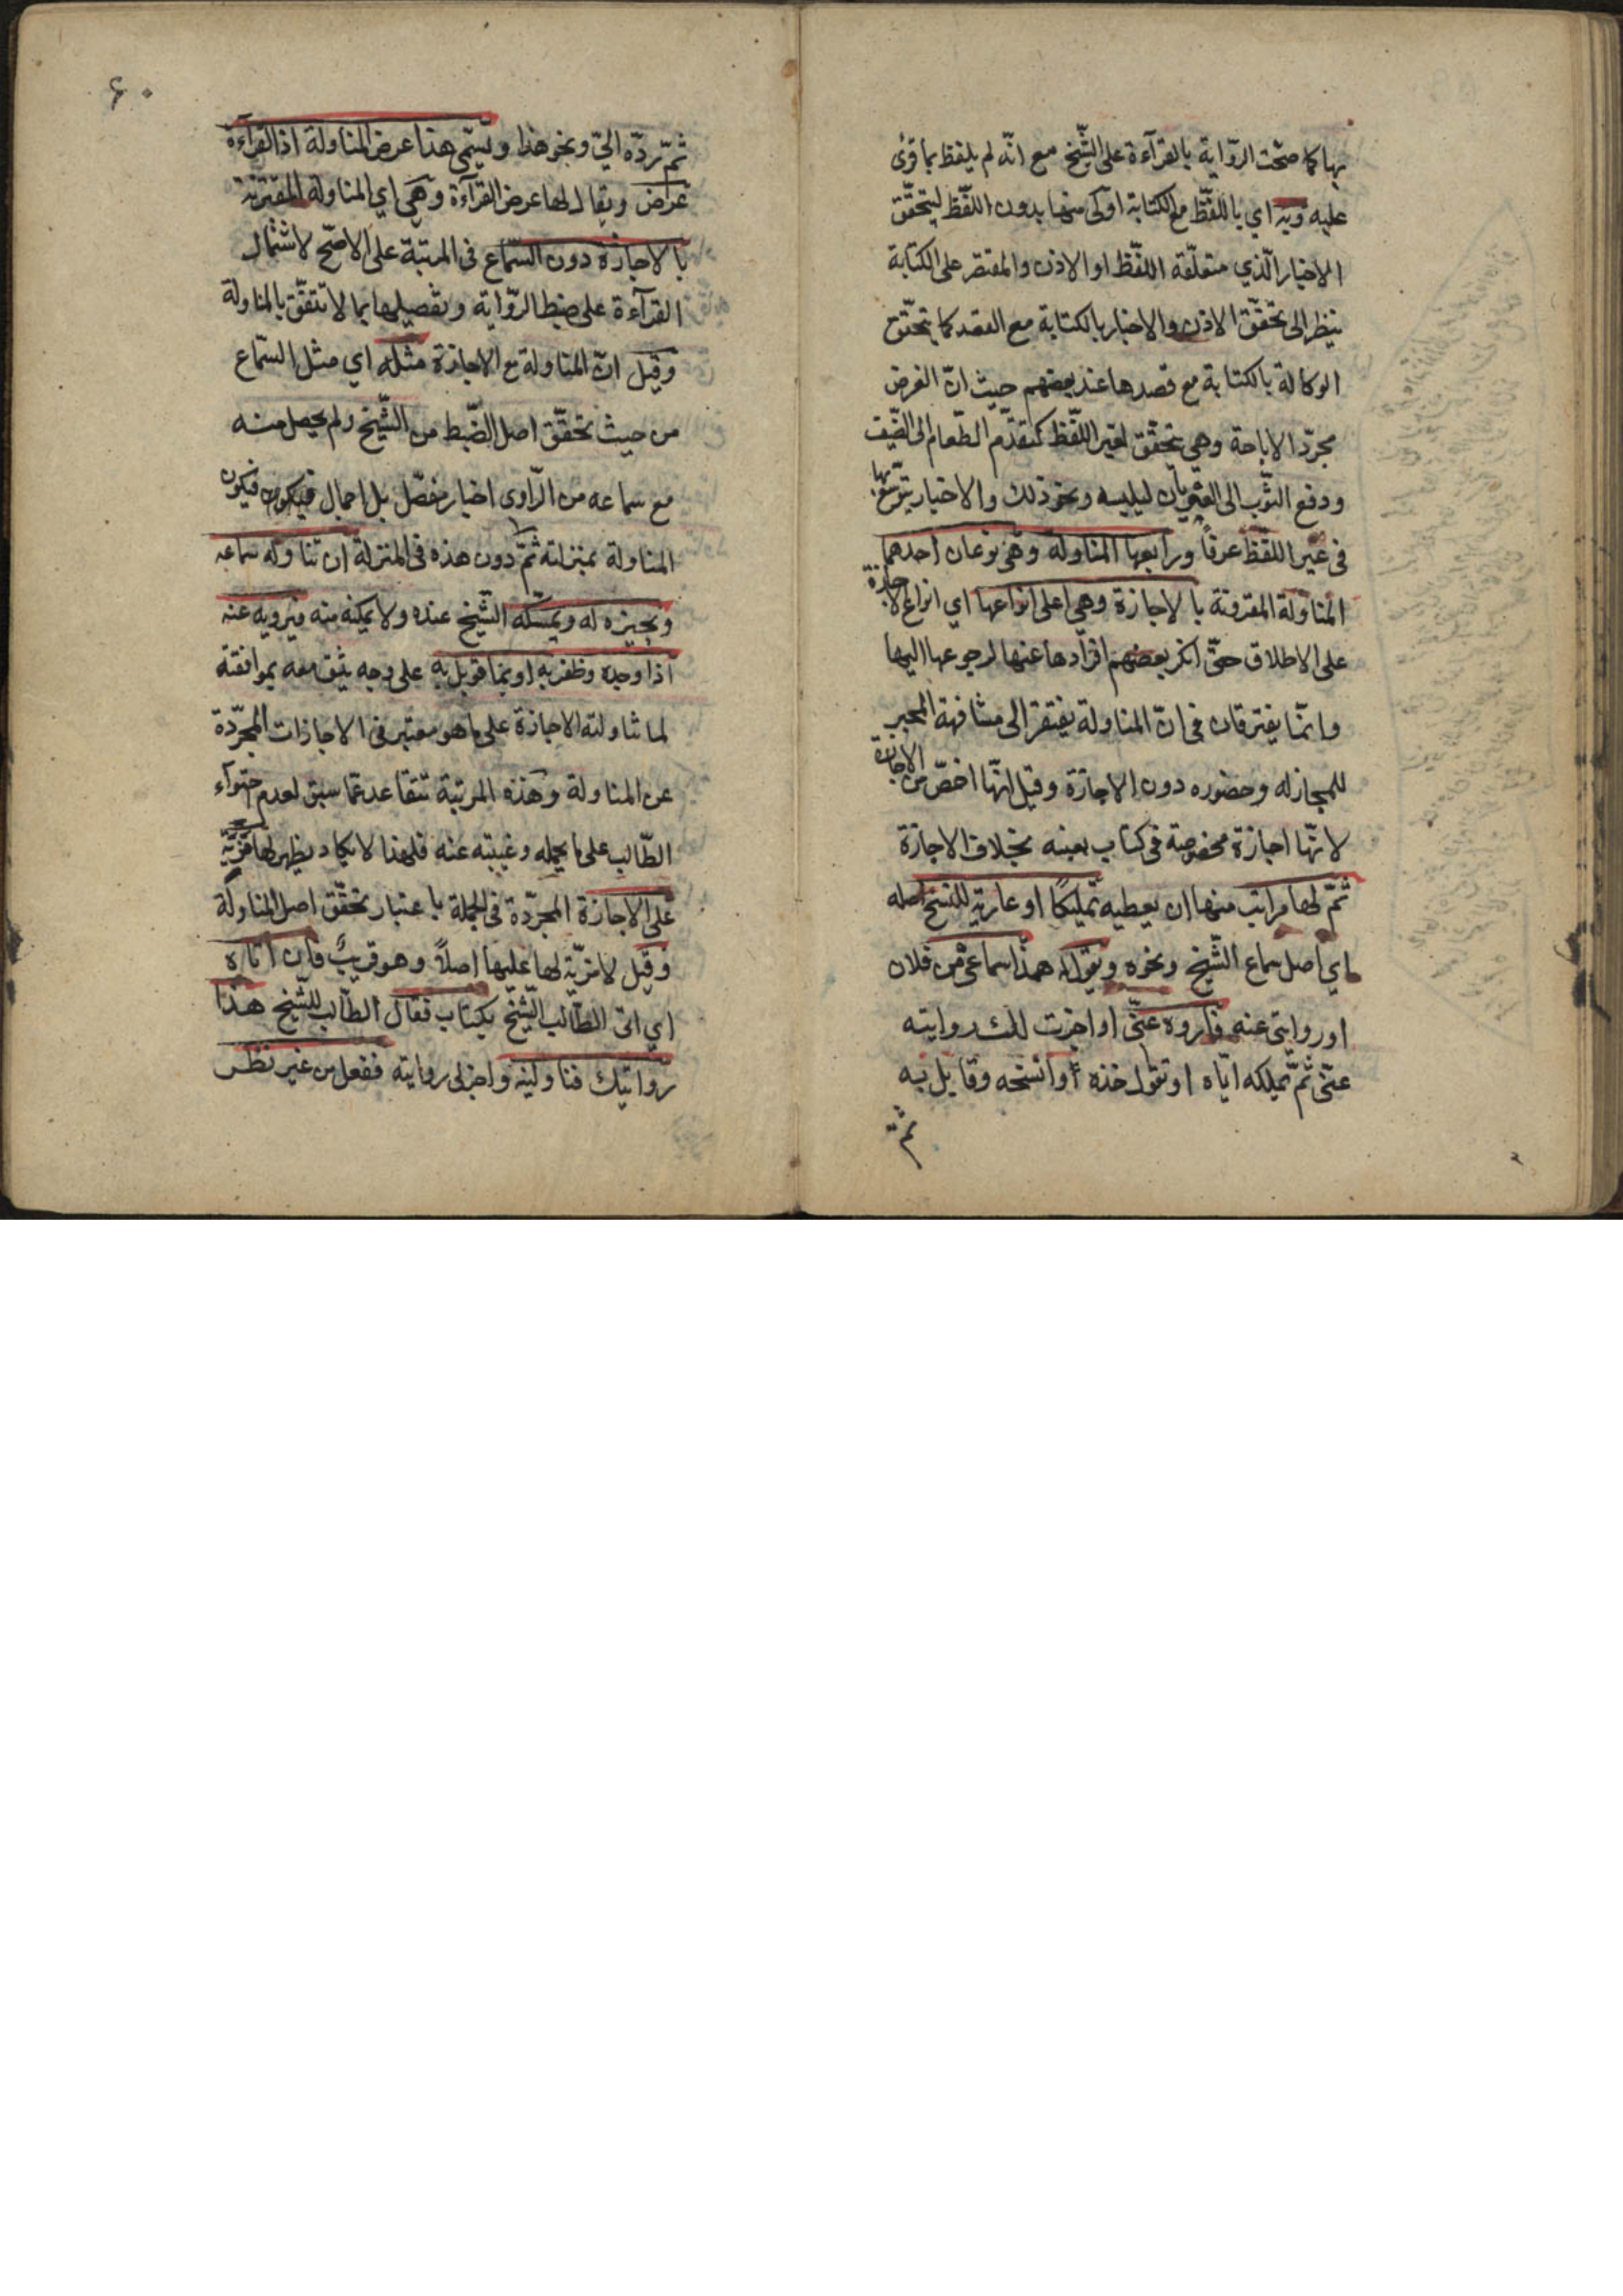 بها كما صحّت الرّواية بالقرآءة على الشّيخ مع انّه لم يلفظ بما قرئ
عليه وبه اي باللّفظ مع الكتابة اولى منها بدون اللّفظ ليتحقّق
الاخبار الّذي متعلّقه اللّفظ او الاذن والمقتصر على الكتابة
ينظر الى تحقّق الاذن والاخبار بالكتابة مع القصد كما يتحقّق
الوكالة بالكتابة مع قصدها عند بعضهم حيث انّ الغرض
مجرّد الاباحة وهي تتحقّق بغير اللّفظ كتقديم الطّعام الى الضّيف
ودفع الثّوب الى العريان ليلبسه ونحو ذلك والاخبار يتوسّع بها
فى غير اللّفظ عرفًا ورابعها المناولة وهي نوعان احدهما
المناولة المقرونة بالاجازة وهي اعلى انواعها اي انواع الاجازة
على الاطلاق حتّى انكر بعضهم افرادها عنها لرجوعها اليها
وانّما يفترقان فى انّ المناولة يفتقر الى مشافهة المجيز
للمجاز له وحضوره دون الاجازة وقيل انّها اخصّ من الاجازة
لانّها اجازة مخصوصة فى كتاب بعينه بخلاف الاجازة
ثمّ لها مراتب منها ان يعطيه تمليكًا او عارية للنسخ اصله
اي اصل سماع الشّيخ ونحوه ويقول له هذا سماعي من فلان
او روايتى عنه فاروه عنّى او اجزت لك روايته
عنّى ثمّ يملكه ايّاه او تقول خذه أو انسخه وقابل به
ثم
٦٠
ثمّ ردّه اليّ ونحو هذا ويسمّى هذا عرض المناولة اذ القرآءة
عرض ويقال لها عرض القرآءة وهي اي المناولة المقترنة
بالاجازة دون السّماع فى المرتبة على الاصّح لاشتمال
القرآءة على ضبط الرّواية وتفصيلها بما لا تتفّق بالمناولة
وقيل انّ المناولة مع الاجازة مثله اي مثل السّماع
من حيث تحقّق اصل الضّبط من الشّيخ ولم يحصل منه
مع سماعه من الرّاوى اخبار مفصّل بل اجمال فيكون فيكون
المناولة بمنزلته ثمّ دون هذه فى المنزلة ان تناوله سماعه
ويجيزه له ويمسكه الشّيخ عنده ولا يمكنه منه فيرويه عنه
اذا وجده وظفر به او بما قوبل به على وجه يثق معه بموافقته
لما تناولته الاجازة على ما هو معتبر فى الاجازات المجرّدة
عن المناولة وهذه المرتبة تتقاعد عمّا سبق لعدم احتواء
الطّالب على ما يحمله وغيبته عنه فلهذا لا يكاد يظهر لها مزيّة
على الاجازة المجرّدة فى الجملة باعتبار تحقّق اصل المناولة
وقيل لا مزيّة لها عليها اصلاً وهو قريبٌ فان اتاه
اي اتى الطّالب الشّيخ بكتاب فقال الطّالب للشّيخ هذا
روايتك فناولنيه واجز لى روايته ففعل من غير نظر